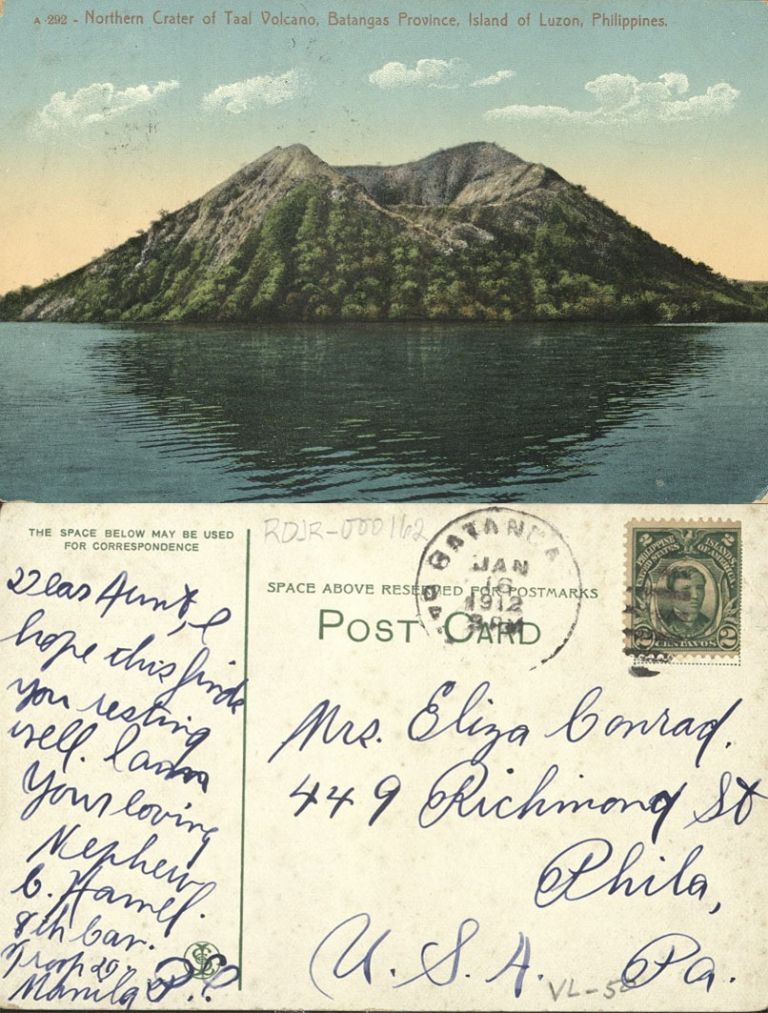 A-292 - Northern Crater of Taal Volcano, Batangas Province, Island of Luzon, Philippines.
THE SPACE BELOW MAY BE USED
FOR CORRESPONDENCE
RDJR-000162
BATANGA
JAN
16
1912
PM
SPACE ABOVE RESERVED FOR POSTMARKS
POST CARD
2 2
PHILIPPINE ISLANDS
UNITED STATES OF AMERICA
2 CENTAVOS 2
Dear Aunt, I
hope this finds
you resting
well. I am
Your loving
Nephew
C. Hamel.
8th Cav.
Troop
Manila P.I.
Mrs. Eliza Conrad.
449 Richmond St
Phila,
U. S. A. Pa.
VL-58